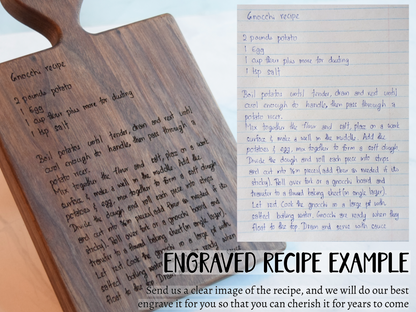 Gnocchi recipe
2 pounds potato
1 egg
1 cup flour plus more for dusting
1 tsp salt
Boil potatoes until tender, drain and rest until
cool enough to handle, then pass through a
potato ricer.
Mix together the flour and salt, place on a work
surface & make a well in the middle. Add the
potatoes & egg, mix together to form a soft dough
Divide the dough and roll each piece into ropes
and cut into ¾ in pieces (add flour as needed if its
sticky). Roll over fork or a gnocchi board and
transfer to a floured baking sheet (in single layer).
Let rest. Cook the gnocchi in a large pot with
salted boiling water. Gnocchi are ready when they
float to the top. Drain and serve with sauce
Gnocchi recipe
2 pounds potato
1 egg
1 cup flour plus more for dusting
1 tsp salt
Boil potatoes until tender, drain and rest until
cool enough to handle, then pass through a
potato ricer.
Mix together the flour and salt, place on a work
surface & make a well in the middle. Add the
potatoes & egg, mix together to form a soft dough
Divide the dough and roll each piece into ropes
and cut into ¾ in pieces (add flour as needed if its
sticky). Roll over fork or a gnocchi board and
transfer to a floured baking sheet (in single layer).
Let rest. Cook the gnocchi in a large pot with
salted boiling water. Gnocchi are ready when they
float to the top. Drain and serve with sauce
ENGRAVED RECIPE EXAMPLE
Send us a clear image of the recipe, and we will do our best
engrave it for you so that you can cherish it for years to come